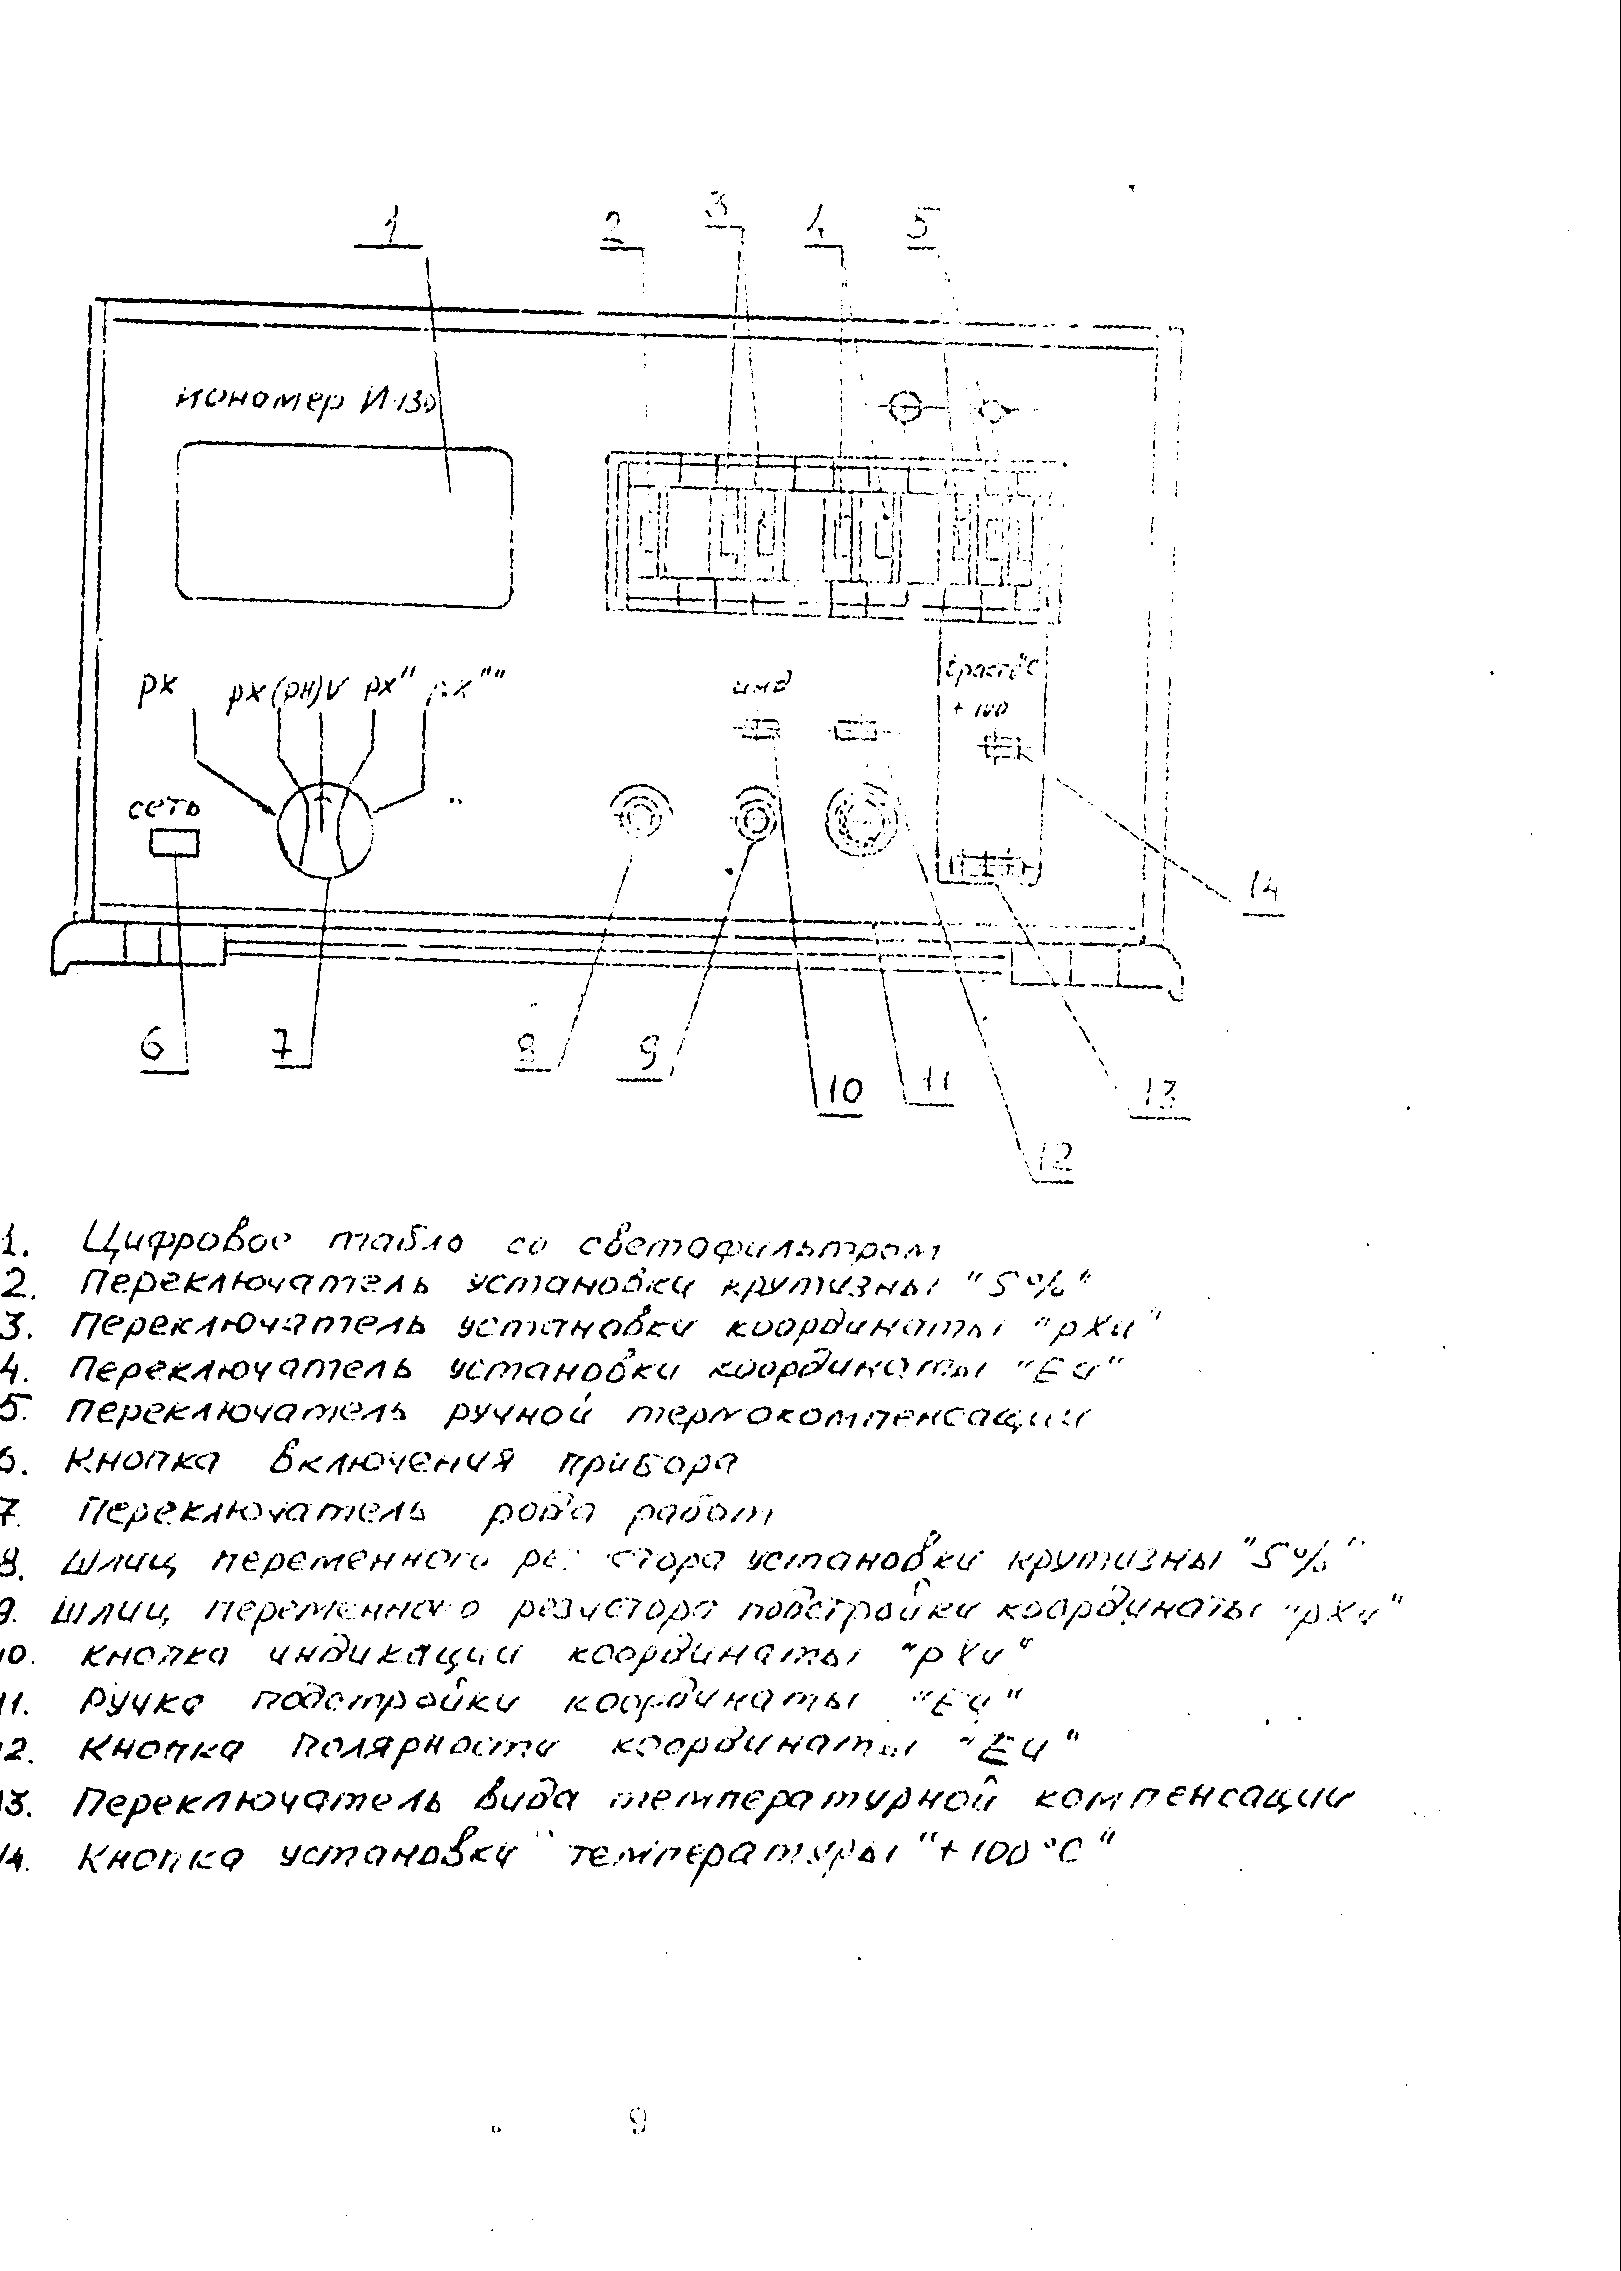 1
2
3
4
5
иономер И-130
рх рх(рн)v рх" рх""
инд
tраств°С
+100
сеть
14
6
7
8
9
10
11
13
12
1. Цифровое табло со светофильтром
2. Переключатель установки крутизны "S%"
3. Переключатель установки координаты "рХи"
4. Переключатель установки координаты "Еи"
5. Переключатель ручной термокомпенсации
6. Кнопка включения прибора
7. Переключатель рода работ
8. Шлиц переменного стора установки крутизны "S%"
9. Шлиц переменного резистора подстройки координаты "рХи"
10. Кнопка индикации координаты "рХи"
11. Ручка подстройки координаты "Еи"
12. Кнопка полярности координаты "Еи"
13. Переключатель вида температурной компенсации
14. Кнопка установки температуры "+100°С"
9